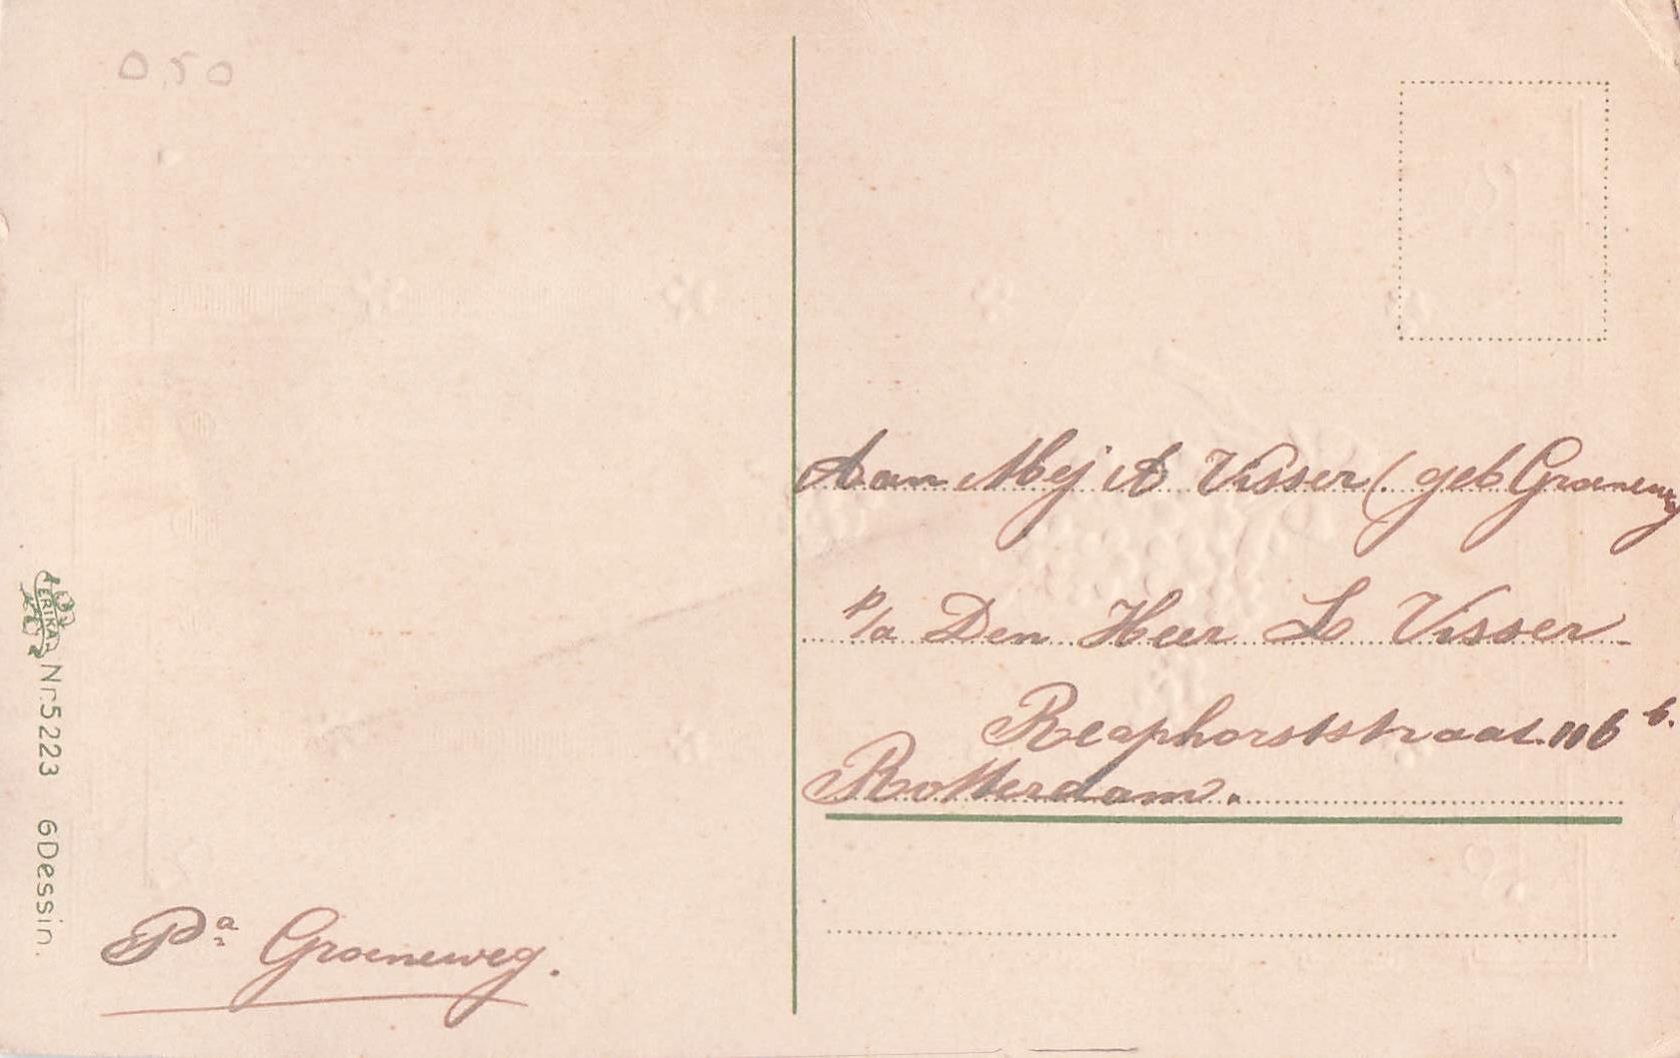 0,50
Aan Mej A Visser (geb Groeneweg
p/a Den Heer L Visser
Raephorststraat 116 b.
Rotterdam.
Pa Groeneweg.
ERIKA
Nr. 5223 6 Dessin.